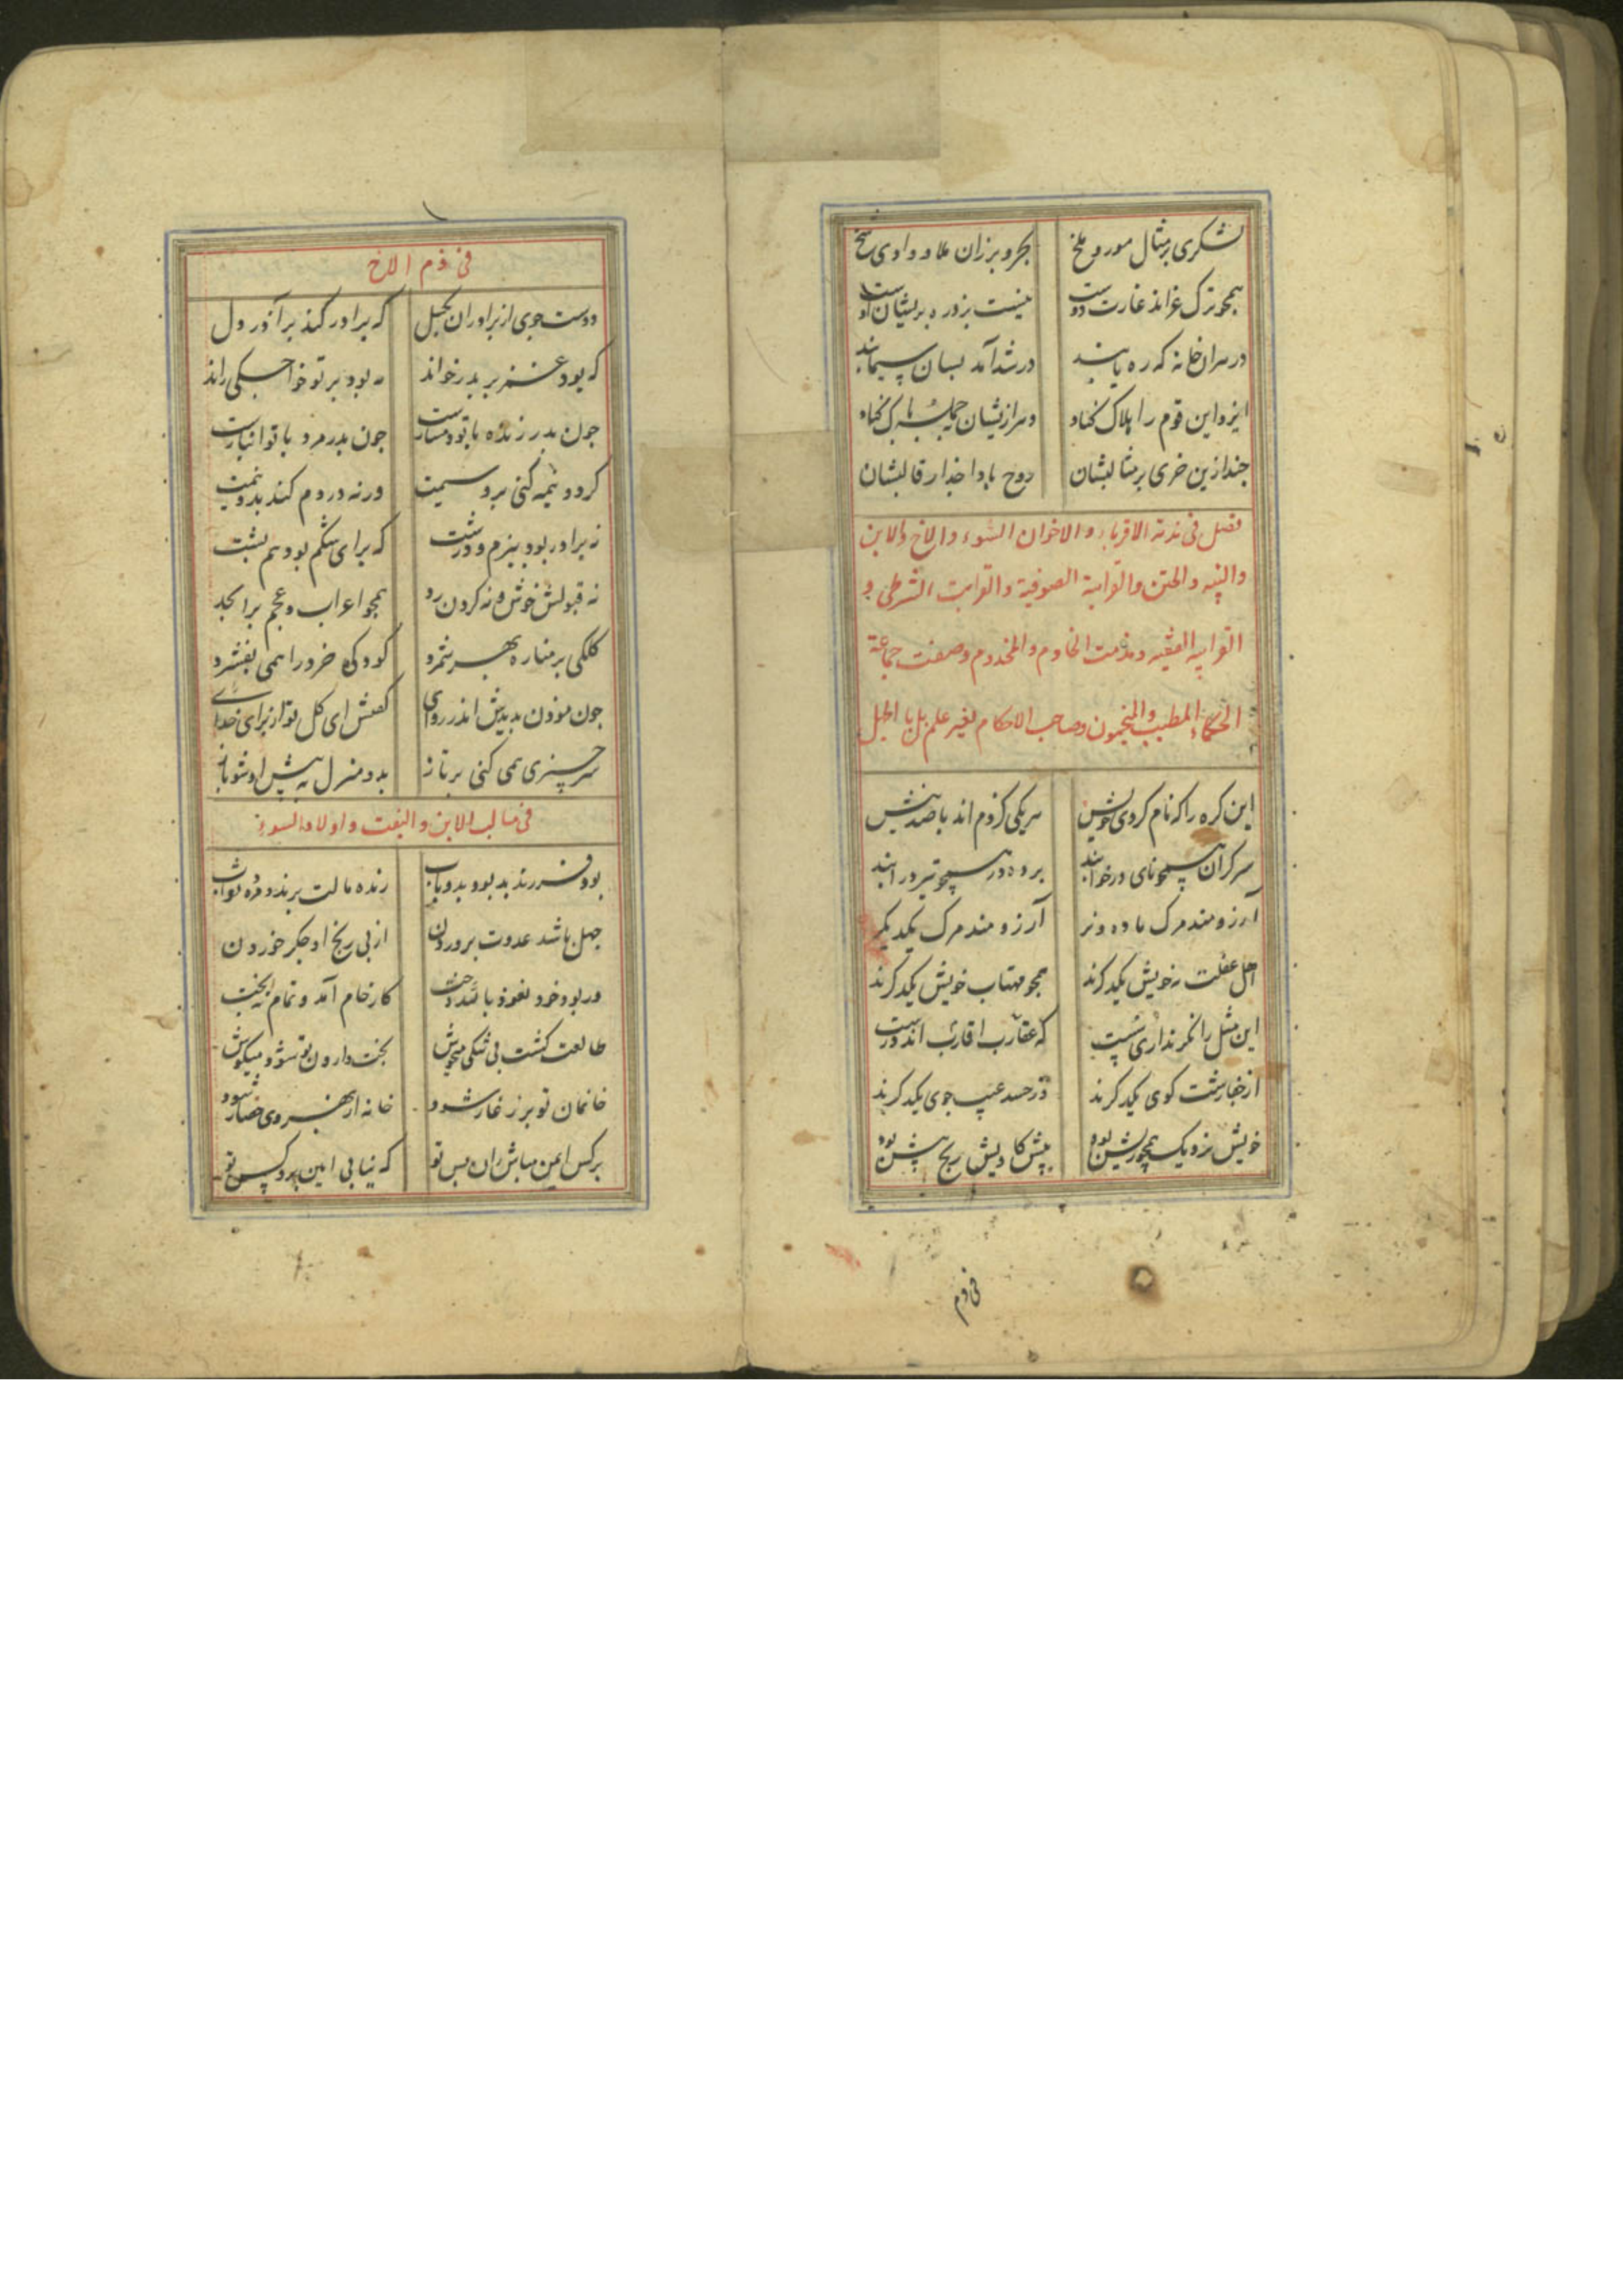 لشکری بر مثال مور و ملخ بحر و بر زان ملا و وادی شخ
همچو ترک غزاند غارت دوست نیست بر دره بریشان اوست
در هران خانه که ره یابند درشد آمد بسان سیمابند
ایزد این قوم را هلاک کناد
چند ازین خری بر مثالبشان روح بادا جدا ز قالبشان
فصل فی مذمة الاقرباء و الاخوان السوء و الاخ والابن
والبنیه والختن والقرابة الصوفیة والقرابت الشرطی و
القرابه الفقیه ومذمت الخادم والمخدوم وصفت جماعة
الحکماء المطبب والمنجمون وصاحب الاحکام بغیر علم بل با الحیل
این کره را که نام کردی خویش هریکی کژدم اند با صد نیش
سرکران همچو نای درخوابند برده در همچو تیر در آبند
آرزومند مرک ماده و نر آرزومند مرک یکدیکر
اهل غفلت ز خویش یکدکرند همچو مهتاب خویش یکدکرند
این مثل را نکر نداری سست که عقارب اقارب اند درست
از جفا زشت کوی یکدکرند در حسد عیب جوی یکدکرند
خویش نزدیک همچو ریش بود بیش کاویش رنج بیش بود
فی ذم
فی ذم الاخ
دوست جوی از برادران بکسل که برادر کند بر آذر دل
که بود عز بر پدر خواند نه بود بر تو خواجکی راند
جون بدر زنده با تو دمسازست جون بدر مرد با تو انبازست
کرد و نیمه کنی برو سیمت ورنه در دم کند بدو نیمت
نه برادر بود بنرم و درشت که برای شکم بود هم پشت
نه قبولش خوش و نه کردن رد همچو اعراب و عجم بر ابجد
کلکی بر مناره بهر ثمرد کودکی خرد را همی بفشرد
جون موذن بدیدش اندر روای کفتش ای کل تو از برای خدای
هر چیزی همی کنی بر تاز بدو منزل به پیش او شو باز
فی مثالب الابن والبنت و اولاد السوء
بود فرزند بد بود بدو باب زنده مالت برند و مرده ثواب
جهل باشد عدوت بروردن از پی رنج او جکر خوردن
ور بود خود نعوذ بالله دخت کار خام آمد و تمام نبخت
طالعت کشت بی شکی منحوش بخت وارون تو شود میکوش
خانمان تو بر ز عار شود خانه از بهر وی حصار شود
بر کس ایمن مباش زان پس تو که نیابی امین برو کس تو